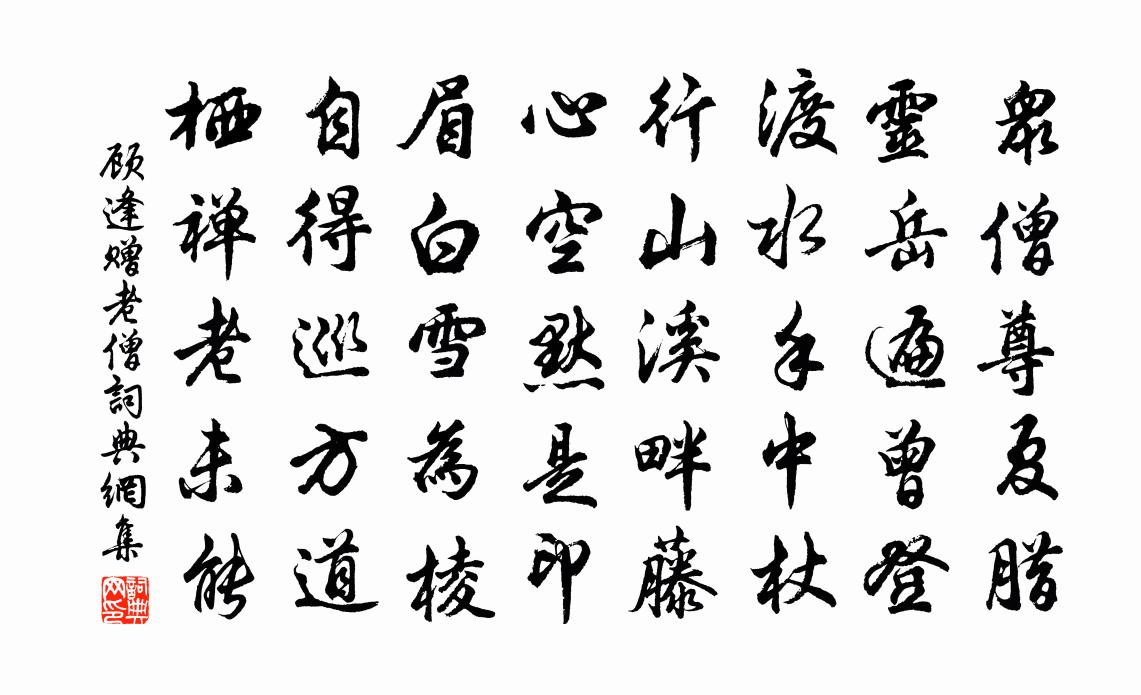 衆僧尊夏腊
靈岳遍曾登
渡水手中杖
行山溪畔藤
心空默是印
眉白雪為棱
自得巡方道
栖禅老未能
顾逢赠老僧詞典網集
詞典网印